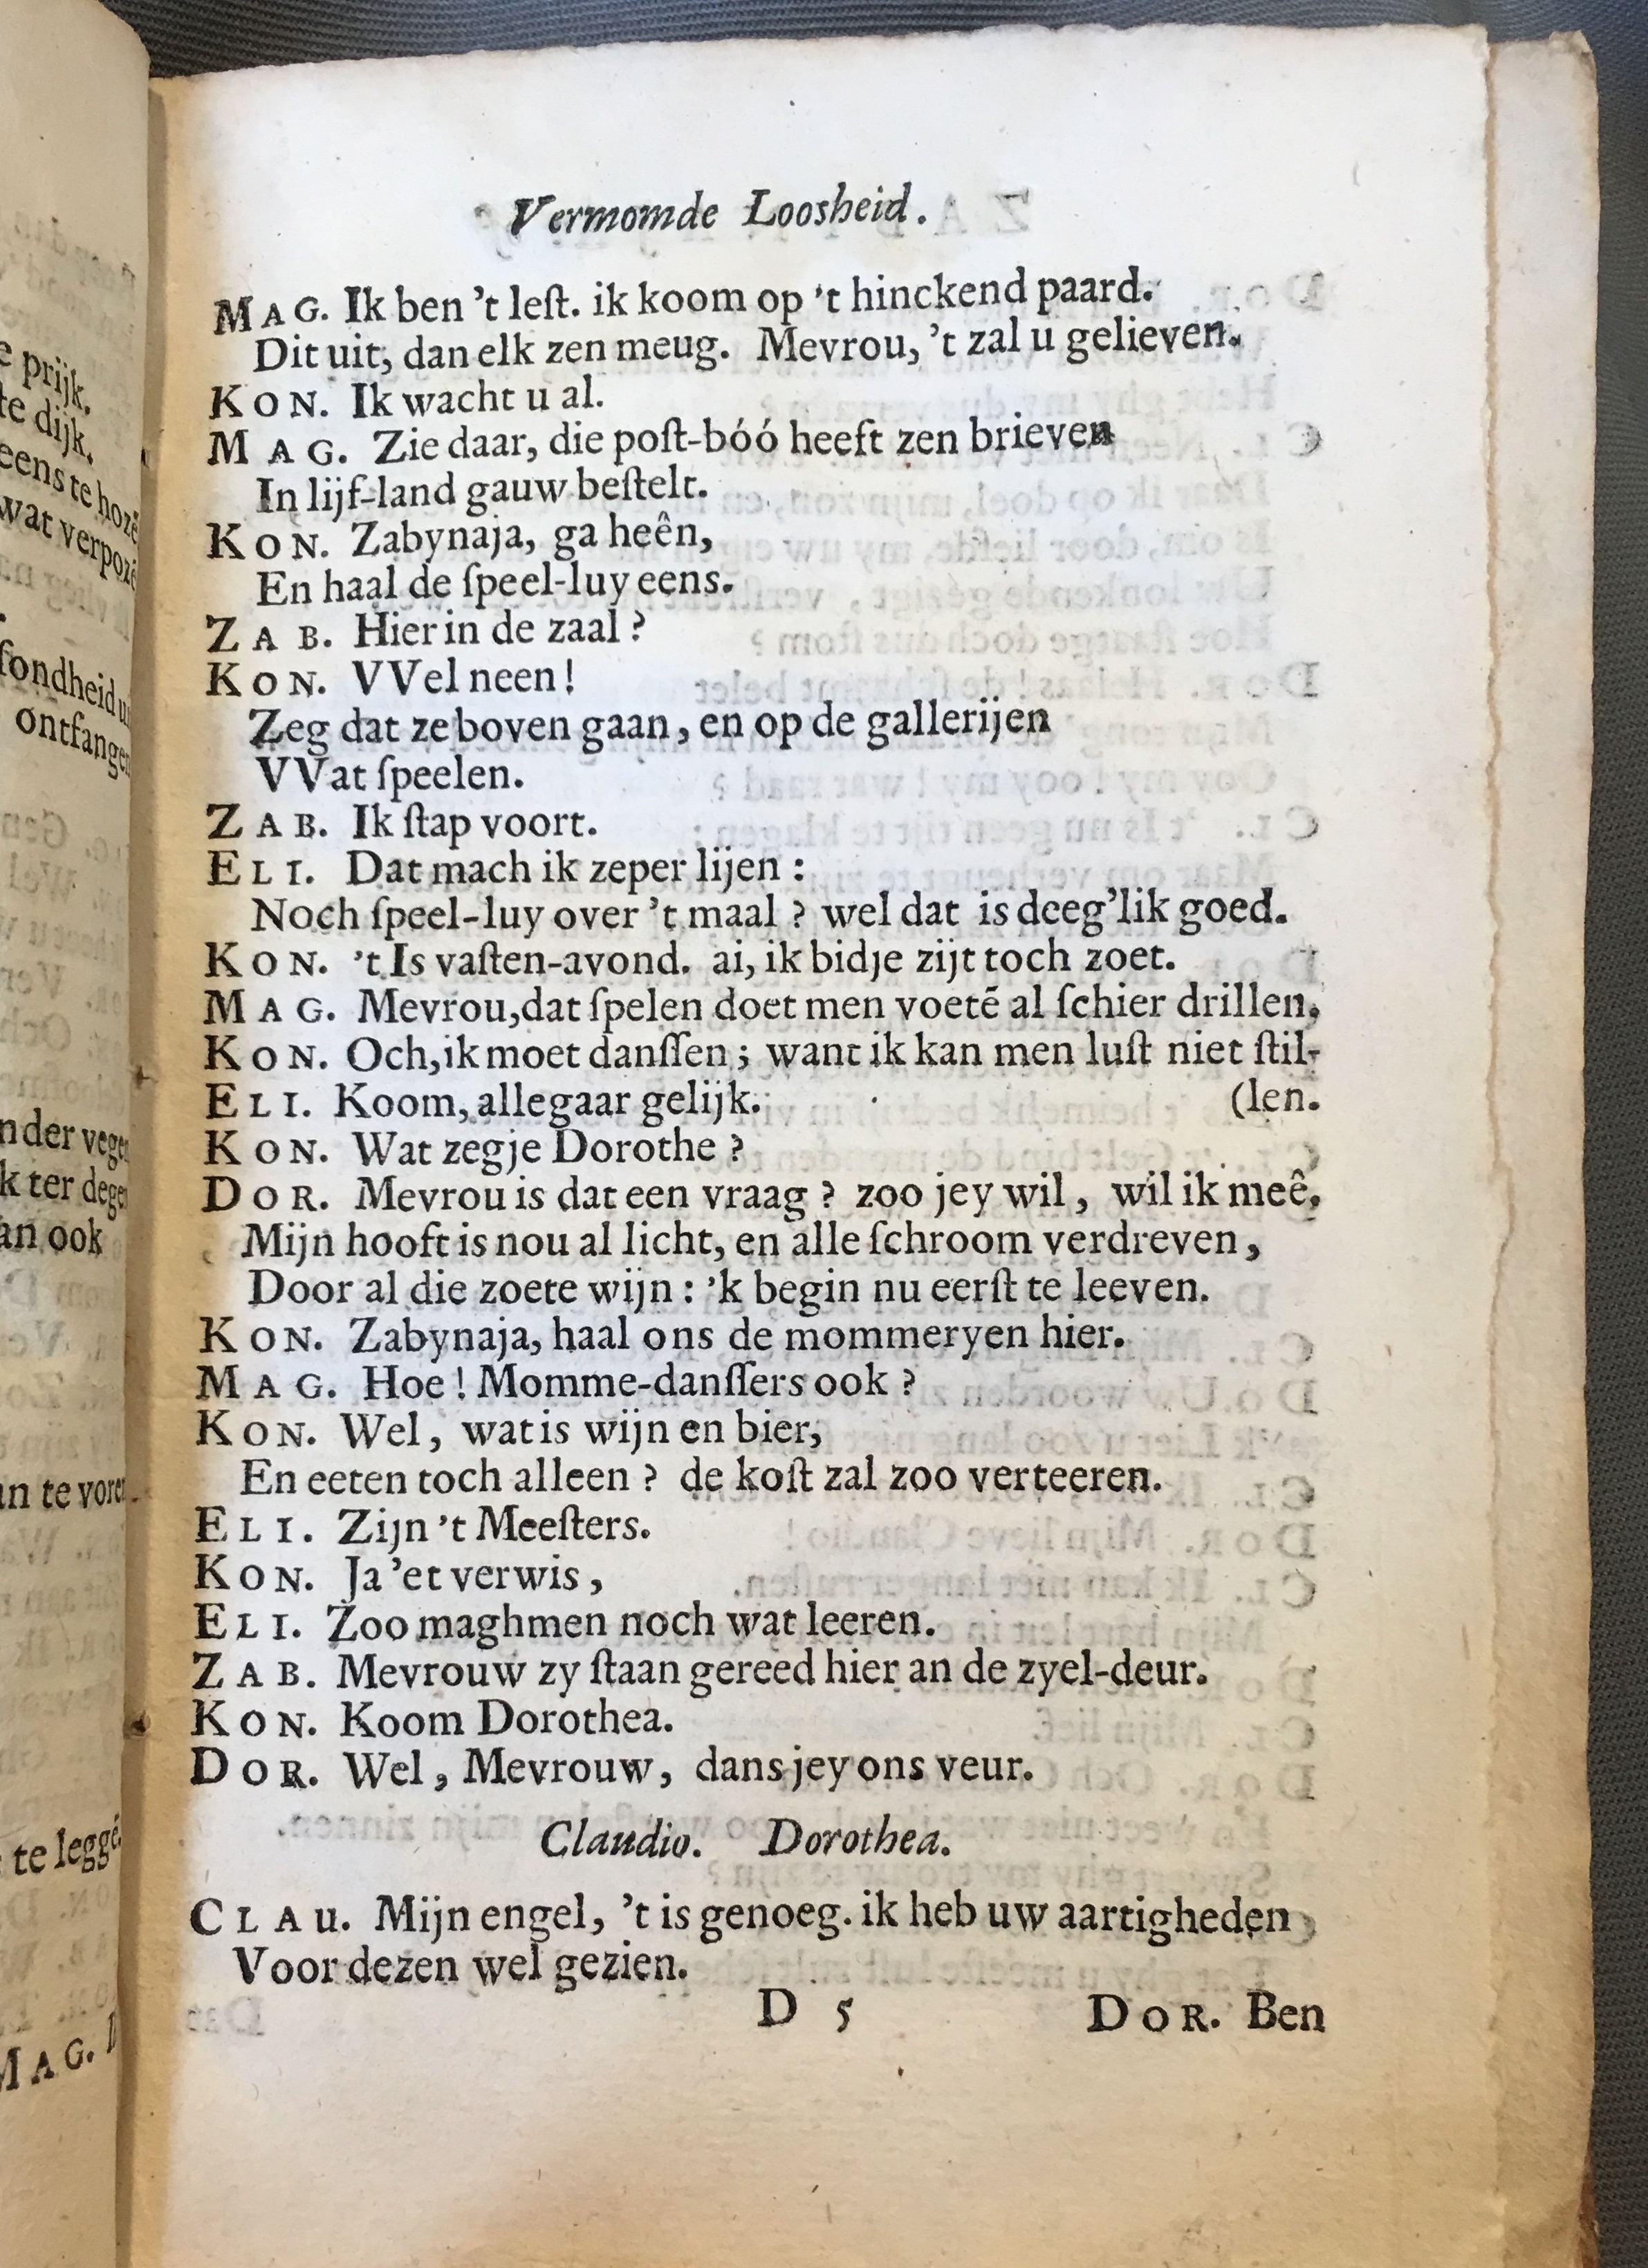 Vermomde Loosheid.
MAG. Ik ben 't leſt. ik koom op 't hinckend paard.
Dit uit, dan elk zen meug. Mevrou, 't zal u gelieven.
KON. Ik wacht u al.
MAG. Zie daar, die poſt-bóó heeft zen brieven
In lijf-land gauw beſtelt.
KON. Zabynaja, ga heên,
En haal de ſpeel-luy eens.
ZAB. Hier in de zaal?
KON. VVel neen!
Zeg dat ze boven gaan, en op de gallerijen
VVat ſpeelen.
ZAB. Ik ſtap voort.
ELI. Dat mach ik zeper lijen:
Noch ſpeel-luy over 't maal? wel dat is deeg'lik goed.
KON. 't Is vaſten-avond. ai, ik bidje zijt toch zoet.
MAG. Mevrou, dat ſpelen doet men voetē al ſchier drillen.
KON. Och, ik moet danſſen; want ik kan men luſt niet ſtil-
ELI. Koom, allegaar gelijk. (len.
KON. Wat zegje Dorothe?
DOR. Mevrou is dat een vraag? zoo jey wil, wil ik meê,
Mijn hooft is nou al licht, en alle ſchroom verdreven,
Door al die zoete wijn: 'k begin nu eerſt te leeven.
KON. Zabynaja, haal ons de mommeryen hier.
MAG. Hoe! Momme-danſſers ook?
KON. Wel, wat is wijn en bier,
En eeten toch alleen? de koſt zal zoo verteeren.
ELI. Zijn 't Meeſters.
KON. Ja 'et verwis,
ELI. Zoo magh men noch wat leeren.
ZAB. Mevrouw zy ſtaan gereed hier an de zyel-deur.
KON. Koom Dorothea.
DOR. Wel, Mevrouw, dans jey ons veur.
Claudio. Dorothea.
CLAU. Mijn engel, 't is genoeg. ik heb uw aartigheden
Voor dezen wel gezien.
D 5 DOR. Ben